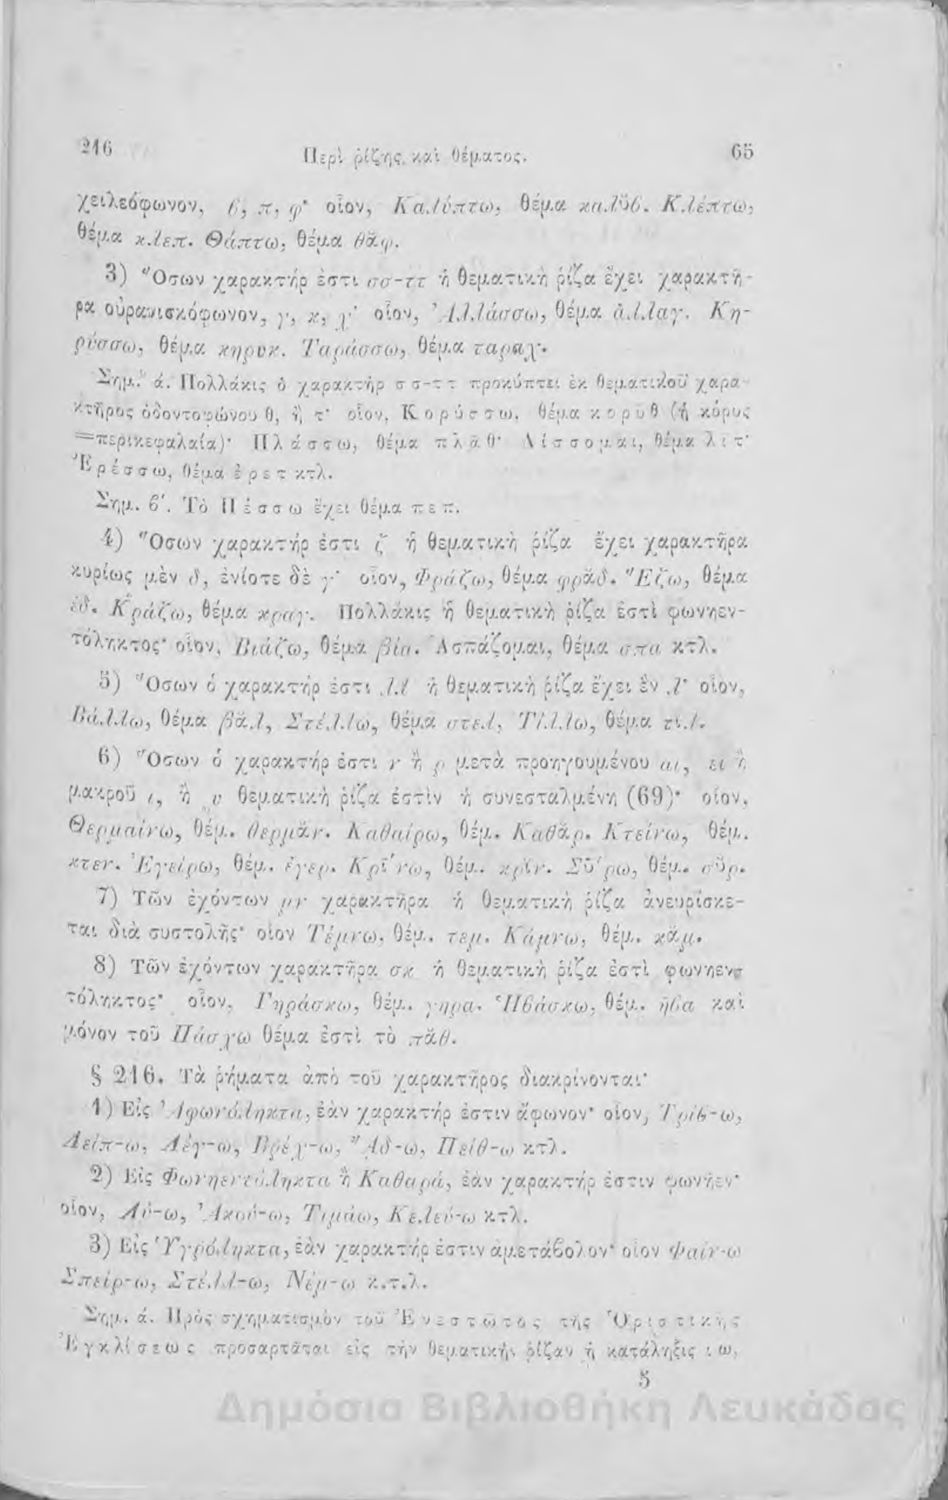 216 Περὶ ῥίζης καὶ θέματος. 65
χειλεόφωνον, ϐ, π, φ· οἷον, Καλύπτω, θέμα καλῠϐ. Κλέπτω,
θέμα κλεπ. Θάπτω, θέμα θᾰφ.
3) Ὅσων χαρακτήρ ἐστι σσ-ττ ἡ θεματικὴ ῥίζα ἔχει χαρακτῆ-
ρα οὐρανισκόφωνον, γ, κ, χ· οἷον, Ἀλλάσσω, θέμα ἀλλαγ. Κη-
ρύσσω, θέμα κηρυκ. Ταράσσω, θέμα ταραχ.
Σημ. ά. Πολλάκις ὁ χαρακτὴρ σσ-ττ προκύπτει ἐκ θεματικοῦ χαρα-
κτῆρος ὀδοντοφώνου θ, ἢ τ· οἷον, Κορύσσω, θέμα κορυθ (ἡ κόρυς
=περικεφαλαία)· Πλάσσω, θέμα πλᾰθ· Λίσσομαι, θέμα λιτ·
Ἐρέσσω, θέμα ἐρετ κτλ.
Σημ. ϐ'. Τὸ Πέσσω ἔχει θέμα πεπ.
4) Ὅσων χαρακτήρ ἐστι ζ ἡ θεματικὴ ῥίζα ἔχει χαρακτῆρα
κυρίως μὲν δ, ἐνίοτε δὲ γ· οἷον, Φράζω, θέμα φρᾰδ. Ἕζω, θέμα
ἑδ. Κράζω, θέμα κραγ. Πολλάκις ἡ θεματικὴ ῥίζα ἐστὶ φωνηεν-
τόληκτος· οἷον, Βιάζω, θέμα βία. Ἀσπάζομαι, θέμα σπα κτλ.
5) Ὅσων ὁ χαρακτήρ ἐστι λλ ἡ θεματικὴ ῥίζα ἔχει ἓν λ· οἷον,
Βάλλω, θέμα βᾰλ, Στέλλω, θέμα στελ, Τίλλω, θέμα τιλ.
6) Ὅσων ὁ χαρακτήρ ἐστι ν ἢ ρ μετὰ προηγουμένου αι, ει ἢ
μακροῦ ι, ἢ υ θεματικὴ ῥίζα ἐστὶν ἡ συνεσταλμένη (69)· οἷον,
Θερμαίνω, θέμ. θερμᾰν. Καθαίρω, θέμ. Καθᾰρ. Κτείνω, θέμ.
κτεν. Ἐγείρω, θέμ. ἐγερ. Κρῑ́νω, θέμ. κρῐν. Σῡ́ρω, θέμ. σῠρ.
7) Τῶν ἐχόντων μν χαρακτῆρα ἡ θεματικὴ ῥίζα ἀνευρίσκε-
ται διὰ συστολῆς· οἷον Τέμνω, θέμ. τεμ. Κάμνω, θέμ. κᾰμ.
8) Τῶν ἐχόντων χαρακτῆρα σκ ἡ θεματικὴ ῥίζα ἐστὶ φωνηεν-
τόληκτος· οἷον, Γηράσκω, θέμ. γηρα. Ἡϐάσκω, θέμ. ἡϐα καὶ
μόνον τοῦ Πάσχω θέμα ἐστὶ τὸ πᾰθ.
§ 216. Τὰ ῥήματα ἀπὸ τοῦ χαρακτῆρος διακρίνονται·
1) Εἰς Ἀφωνόληκτα, ἐὰν χαρακτήρ ἐστιν ἄφωνον· οἷον, Τρίϐ-ω,
Λείπ-ω, Λέγ-ω, Βρέχ-ω, Ἄδ-ω, Πείθ-ω κτλ.
2) Εἰς Φωνηεντόληκτα ἢ Καθαρά, ἐὰν χαρακτήρ ἐστιν φωνῆεν·
οἷον, Λύ-ω, Ἀκού-ω, Τιμάω, Κελεύ-ω κτλ.
3) Εἰς Ὑγρόληκτα, ἐὰν χαρακτήρ ἐστιν ἀμετάϐολον· οἷον Φαίν-ω
Σπείρ-ω, Στέλλ-ω, Νέμ-ω κ.τ.λ.
Σημ. ά. Πρὸς σχηματισμὸν τοῦ Ἐνεστῶτος τῆς Ὁριστικῆς
Ἐγκλίσεως προσαρτᾶται εἰς τὴν θεματικὴν ῥίζαν ἡ κατάληξις ω,
5
Δημόσια Βιβλιοθήκη Λευκάδας